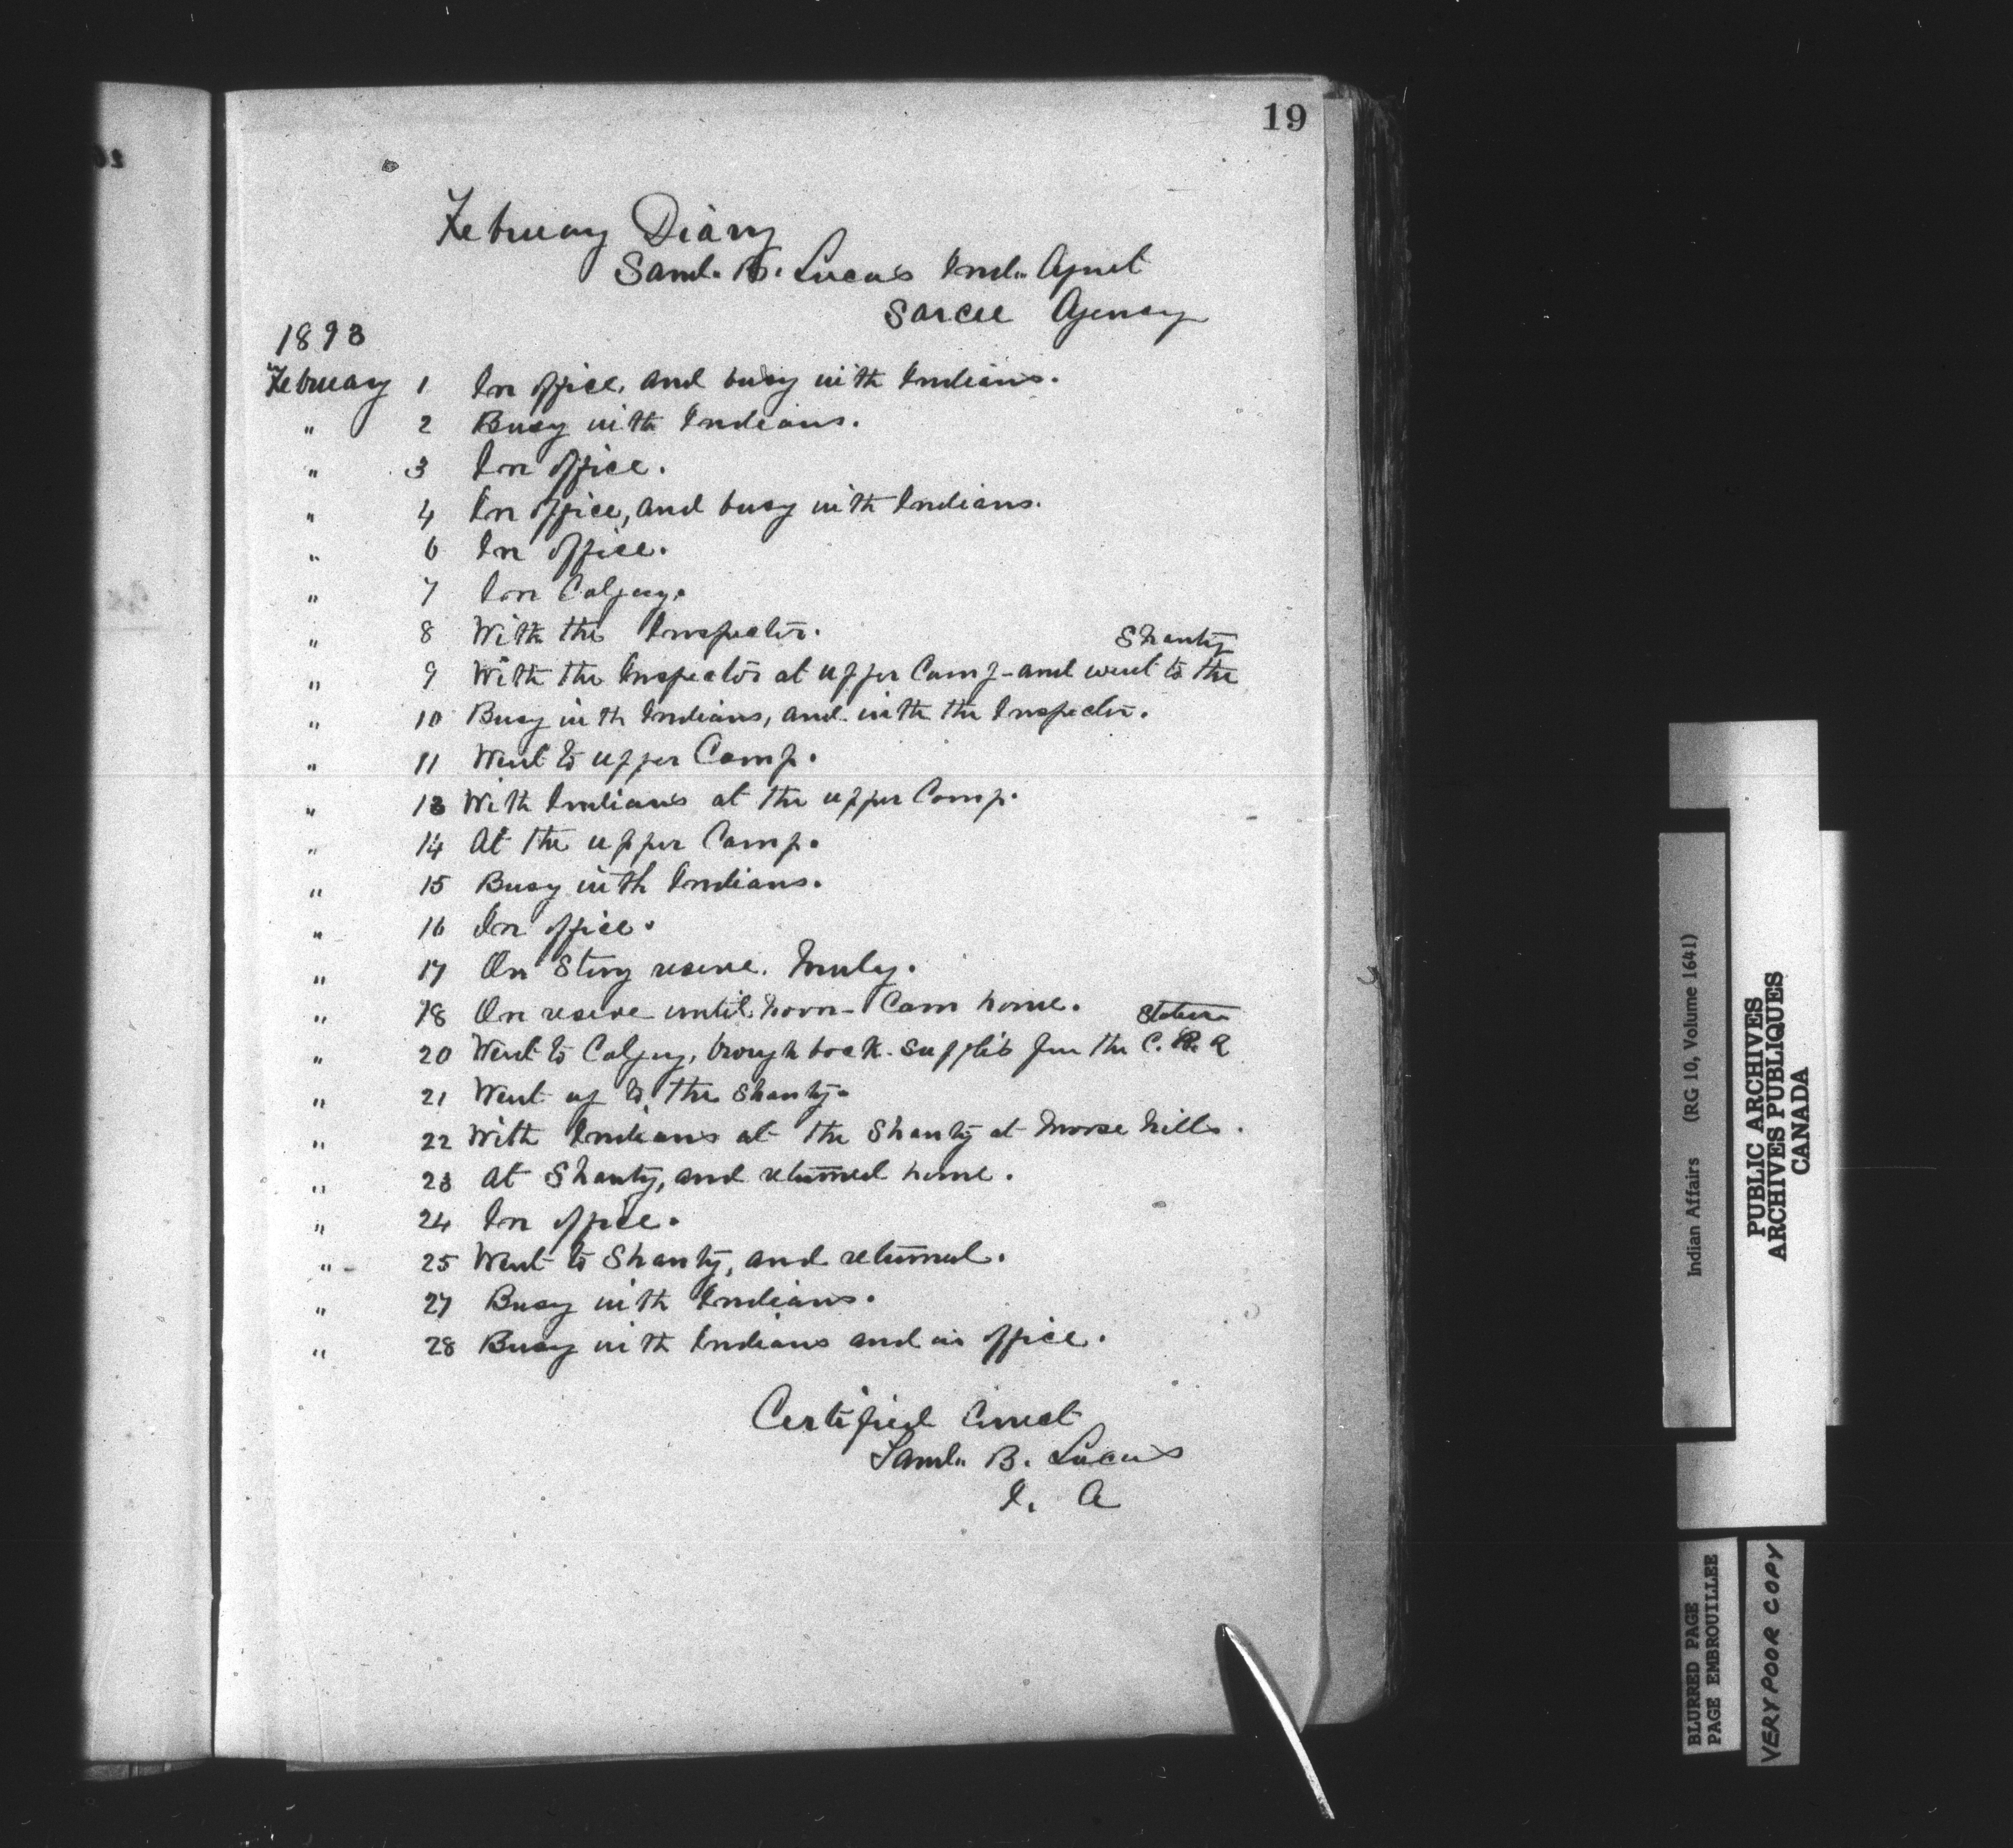 19
February Diary
Saml. B. Lucas Ind. Agent
Sarcee Agency
1893
February 1 In office, and busy with Indians.
" 2 Busy with Indians.
" 3 In office.
" 4 In office, and busy with Indians.
" 6 In office.
" 7 In Calgary.
" 8 With the Inspector.
Shanty
" 9 With the Inspector at upper Camp - and went to the
" 10 Busy with Indians, and with the Inspector.
" 11 Went to upper Camp.
" 13 With Indians at the upper Camp.
" 14 At the upper Camp.
" 15 Busy with Indians.
" 16 In office.
" 17 On Stony reserve. Morley.
" 18 On reserve until noon - Cam home.
Station
" 20 Went to Calgary, brough back supplies from the C. P. R
" 21 Went up to the Shanty.
" 22 With Indians at the Shanty at Moose hills.
" 23 At Shanty, and returned home.
" 24 In office.
" 25 Went to Shanty, and returned.
" 27 Busy with Indians.
" 28 Busy with Indians and in office.
Certified Correct
Saml. B. Lucas
I. A
Indian Affairs (RG 10, Volume 1641)
PUBLIC ARCHIVES
ARCHIVES PUBLIQUES
CANADA
BLURRED PAGE
PAGE EMBROUILLEE
VERY POOR COPY